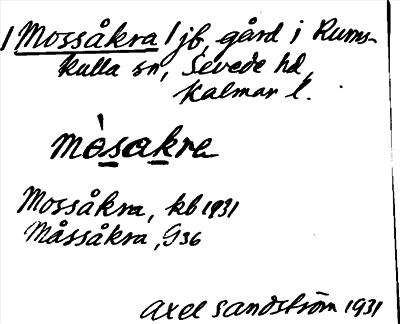 /Mossåkra/ jb, gård i Rums-
kulla sn, Sevede hd,
Kalmar l.
mòsakra
Mossåkra, kb 1931
Måssåkra, G36
Axel Sandström 1931